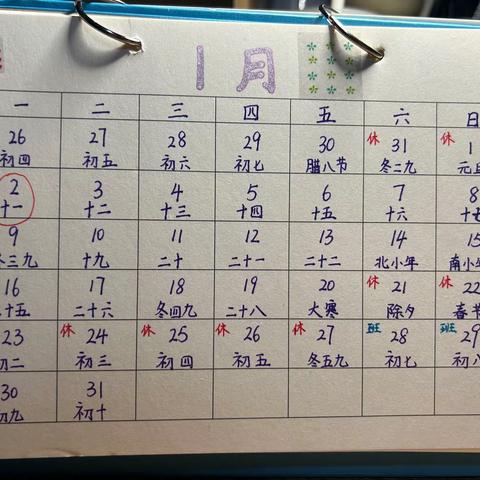 1月
一 二 三 四 五 六 日
26 27 28 29 30 休 31 休 1
初四 初五 初六 初七 腊八节 冬二九 元旦
2 3 4 5 6 7 8
十一 十二 十三 十四 十五 十六 十七
9 10 11 12 13 14 15
冬三九 十九 二十 二十一 二十二 北小年 南小年
16 17 18 19 20 休 21 休 22
十五 二十六 冬四九 二十八 大寒 除夕 春节
23 休 24 休 25 休 26 休 27 班 28 班 29
初二 初三 初四 初五 冬五九 初七 初八
30 31
初九 初十